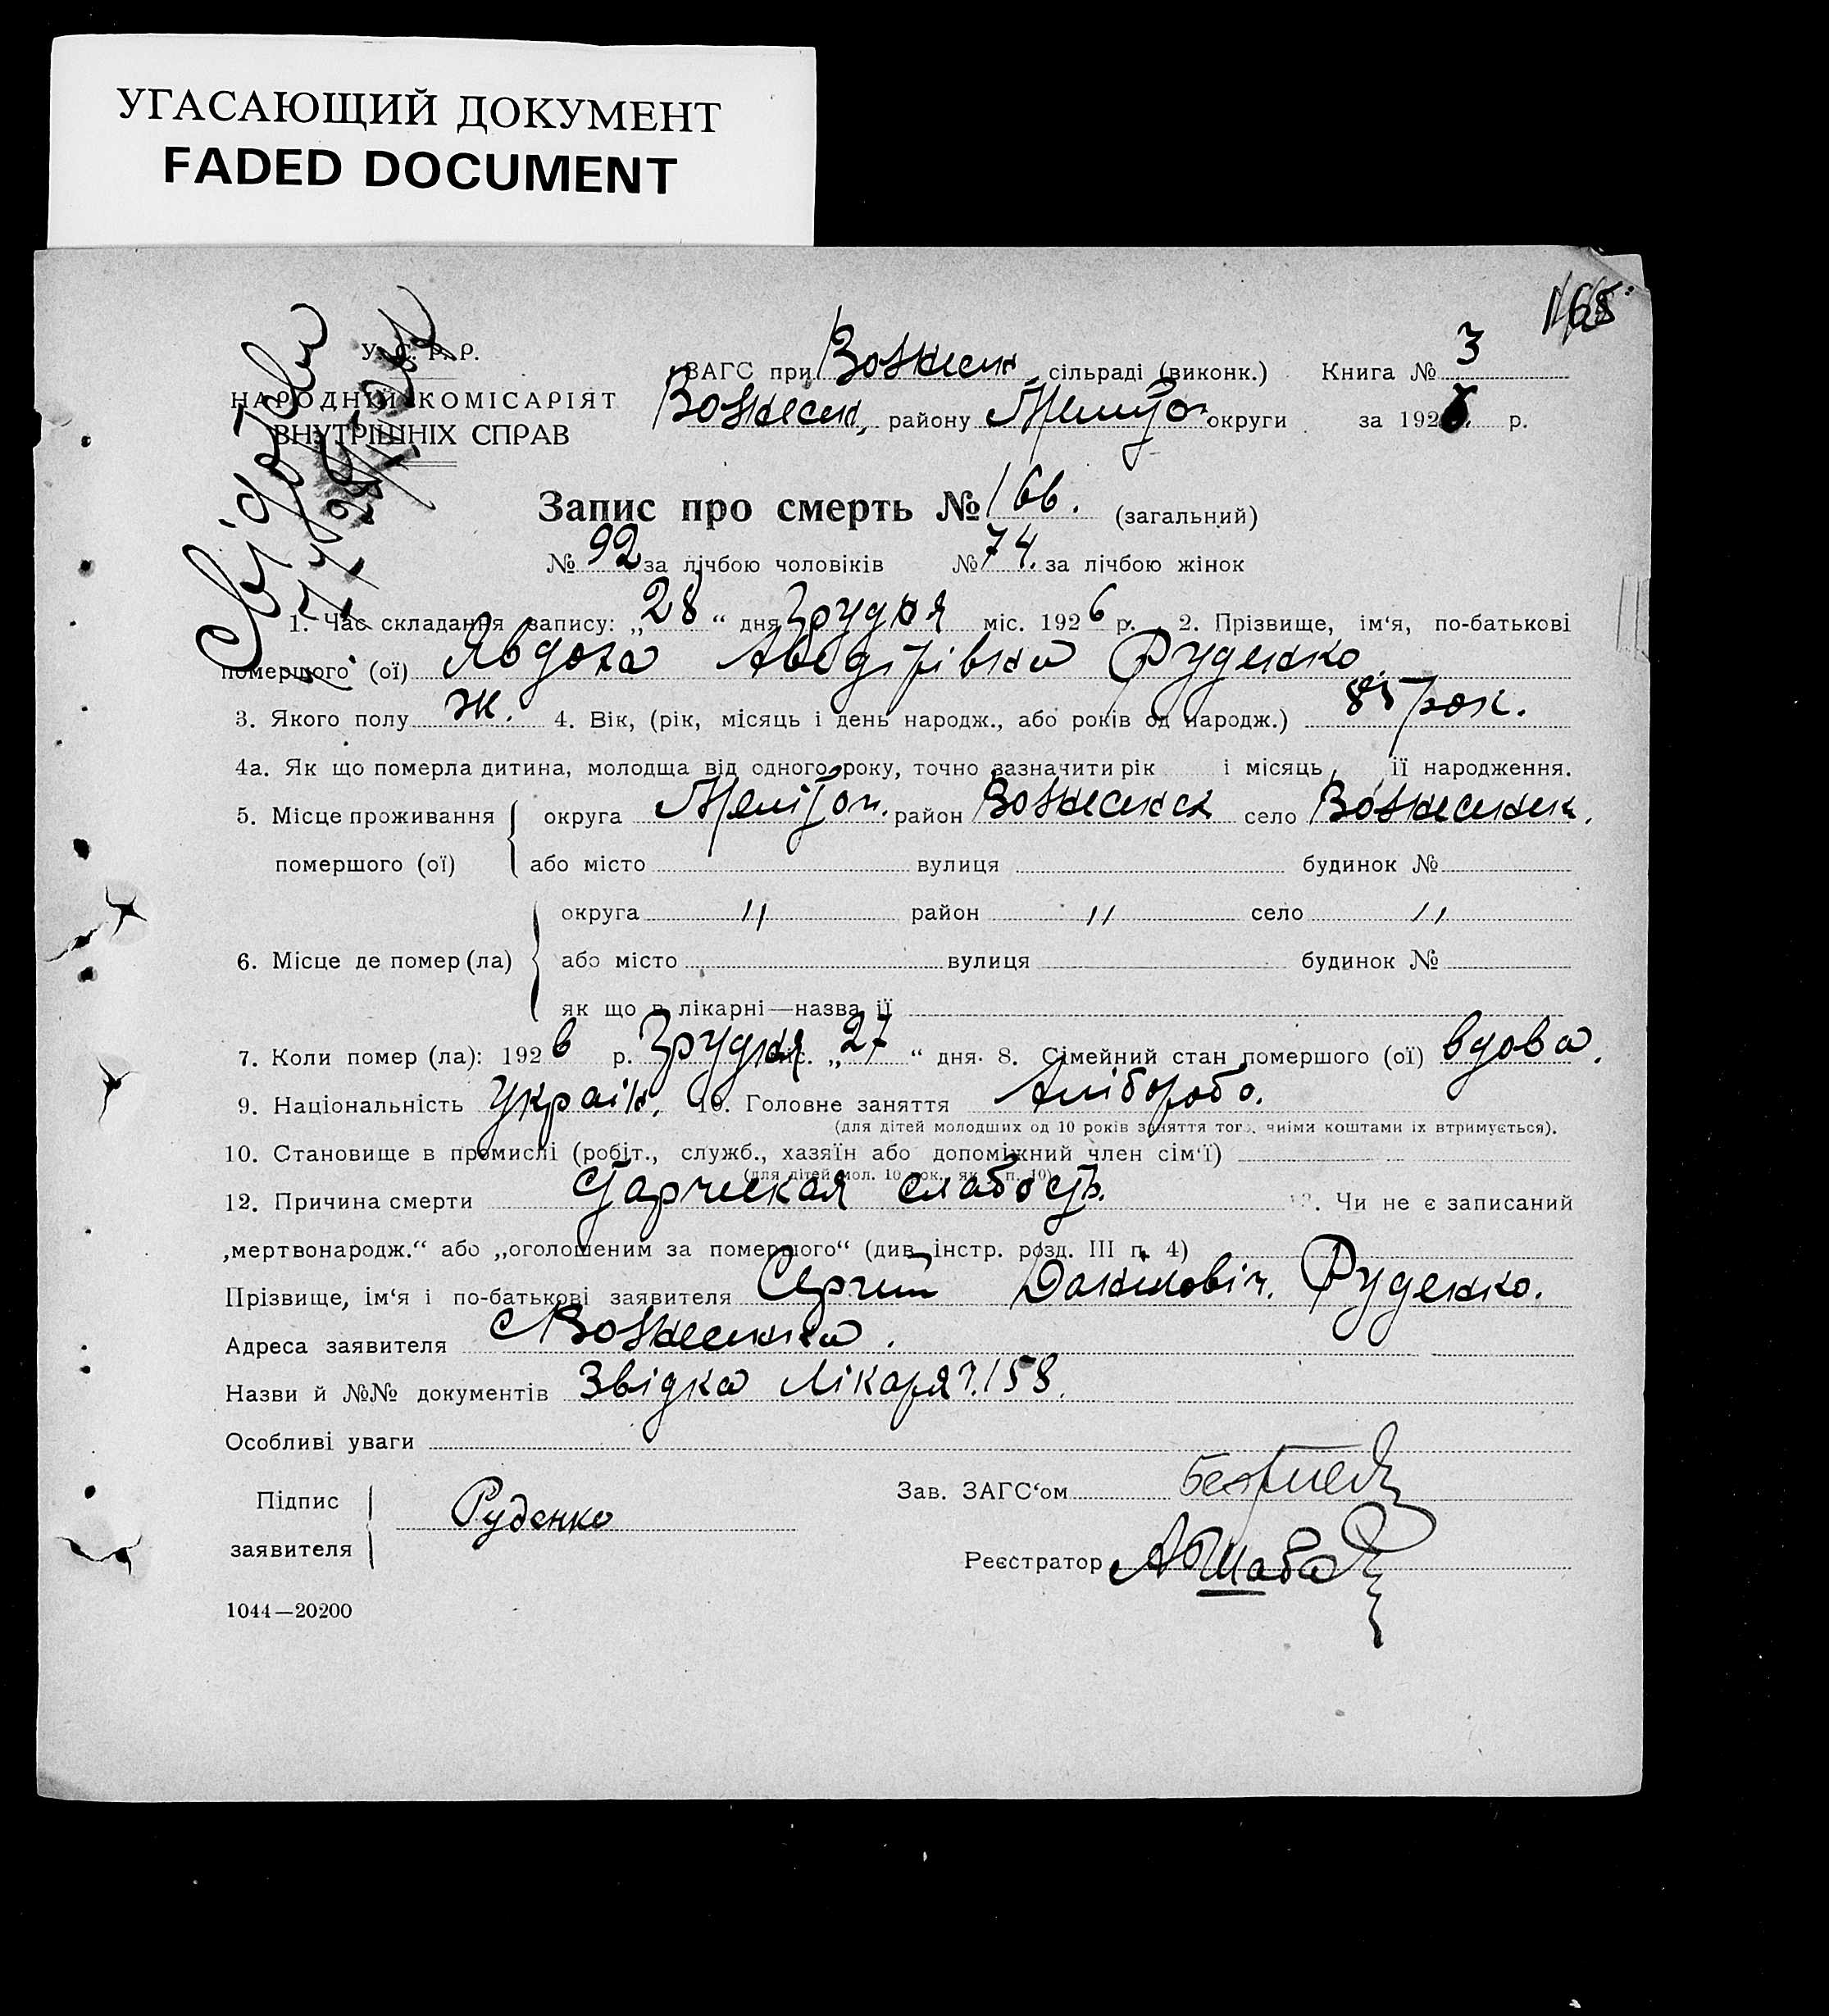 УГАСАЮЩИЙ ДОКУМЕНТ
FADED DOCUMENT
У. С. Р. Р.
НАРОДНИЙ КОМІСАРІЯТ
ВНУТРІШНІХ СПРАВ
ЗАГС при Вознесен. сільраді (виконк.) Книга № 3
Вознесен. района Меліто округи за 192 р.
Запис про смерть № 166. (загальний)
№ 92 за лічбою чоловіків № 74. за лічбою жінок
1. Час складання запису: „28“ дня Грудня міс. 1926 р. 2. Прізвище, ім‘я, по-батькові
помершого (ої) Явдоха Руденко
3. Якого полу ж. 4. Вік, (рік, місяць і день народж., або років од народж.) 85 рок.
4а. Як що померла дитина, молодща від одного року, точно зазначити рік і місяць її народження.
5. Місце проживання округа Мелітоп. район Вознесенск село Вознесенск.
помершого (ої) або місто вулиця будинок №
округа 〃 район 〃 село 〃
6. Місце де помер (ла) або місто вулиця будинок №
як що в лікарні—назва її
7. Коли помер (ла): 1926 р. Грудня міс. „27“ дня. 8. Сімейний стан помершого (ої) вдова.
9. Національність Україн. 10. Головне заняття Хлібороб.
(для дітей молодших од 10 років заняття того, чиїми коштами їх втримується).
10. Становище в промислі (робіт., служб., хазяїн або допоміжний член сім‘ї)
(для дітей мол. 10 рок. як п. 10)
12. Причина смерти Старческая слабость. 13. Чи не є записаний
„мертвонародж.“ або „оголошеним за помершого“ (див. інстр. розд. III п. 4)
Прізвище, ім‘я і по-батькові заявителя Сергій Данилович. Руденко.
Адреса заявителя с Вознесенка.
Назви й №№ документів Звідка Лікаря 158.
Особливі уваги
Підпис заявителя Руденко
Зав. ЗАГС‘ом
Реєстратор
1044—20200